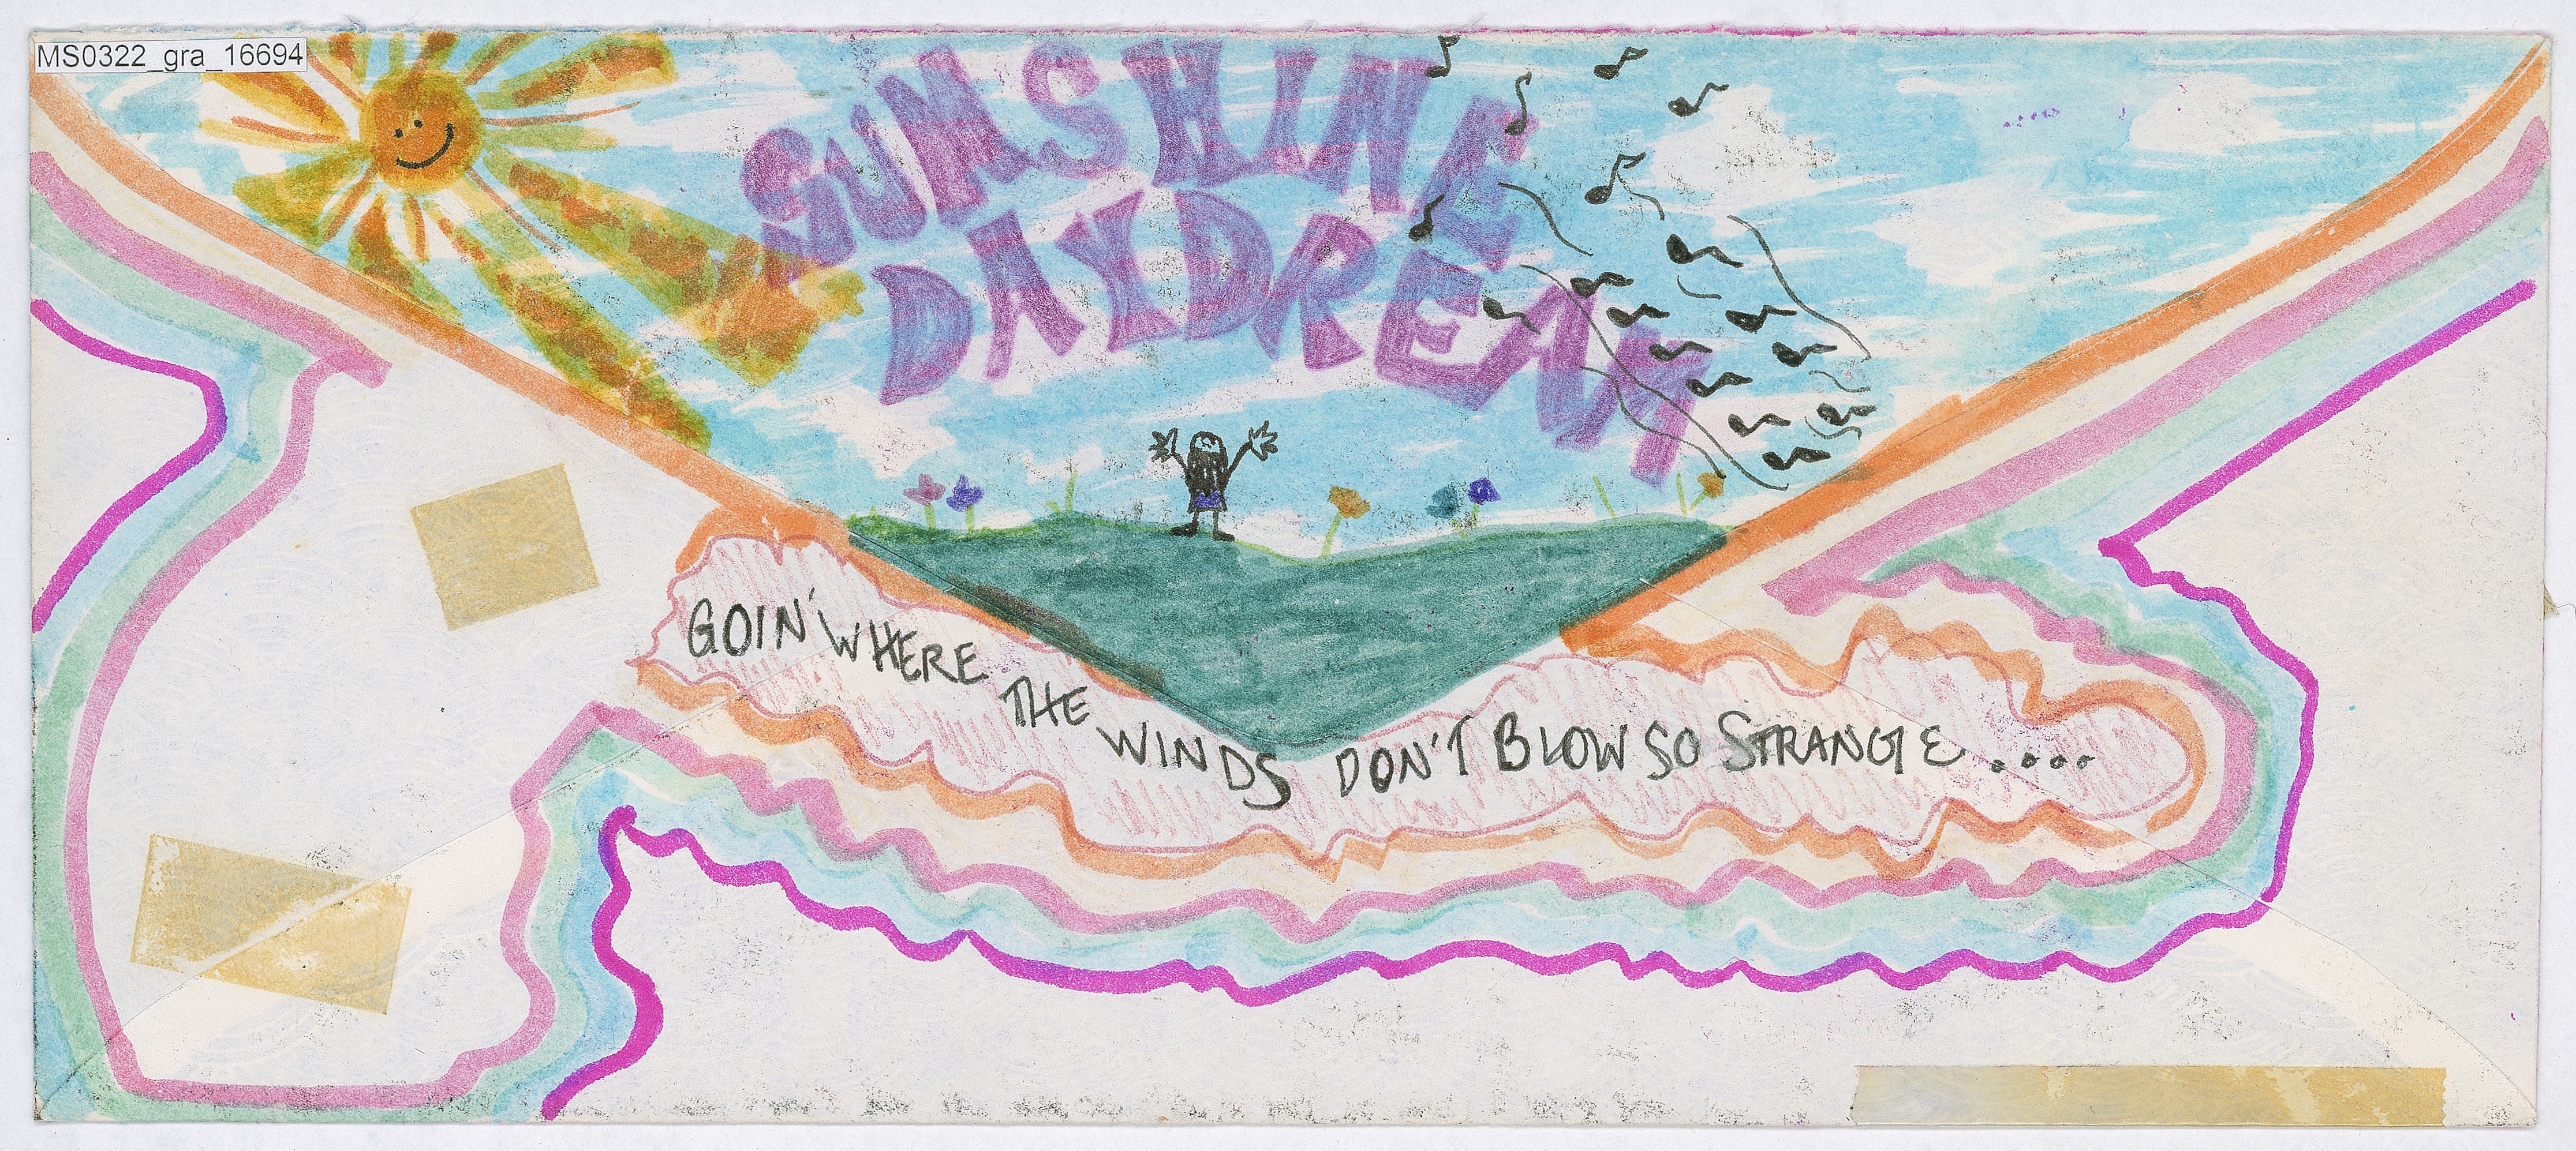 MS0322_gra_16694
SUNSHINE
DAYDREAM
GOIN' WHERE THE WINDS DON'T BLOW SO STRANGE....